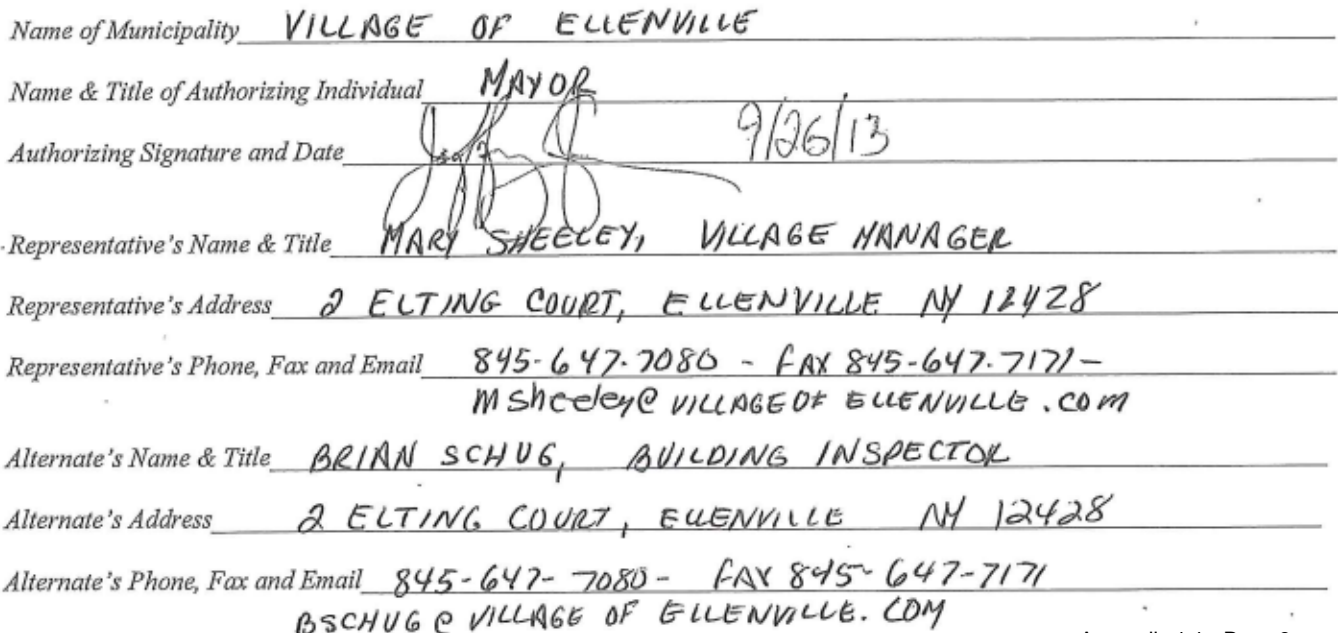 Name of Municipality VILLAGE OF ELLENVILLE
Name & Title of Authorizing Individual MAYOR
Authorizing Signature and Date 9/26/13
Representative's Name & Title MARY SHEELEY, VILLAGE MANAGER
Representative's Address 2 ELTING COURT, ELLENVILLE NY 12428
Representative's Phone, Fax and Email 845-647-7080 - FAX 845-647-7171-
Msheeley@VILLAGEOFELLENVILLE.COM
Alternate's Name & Title BRIAN SCHUG, BUILDING INSPECTOR
Alternate's Address 2 ELTING COURT, ELLENVILLE NY 12428
Alternate's Phone, Fax and Email 845-647-7080 - FAX 845-647-7171
BSCHUG@VILLAGE OF ELLENVILLE.COM